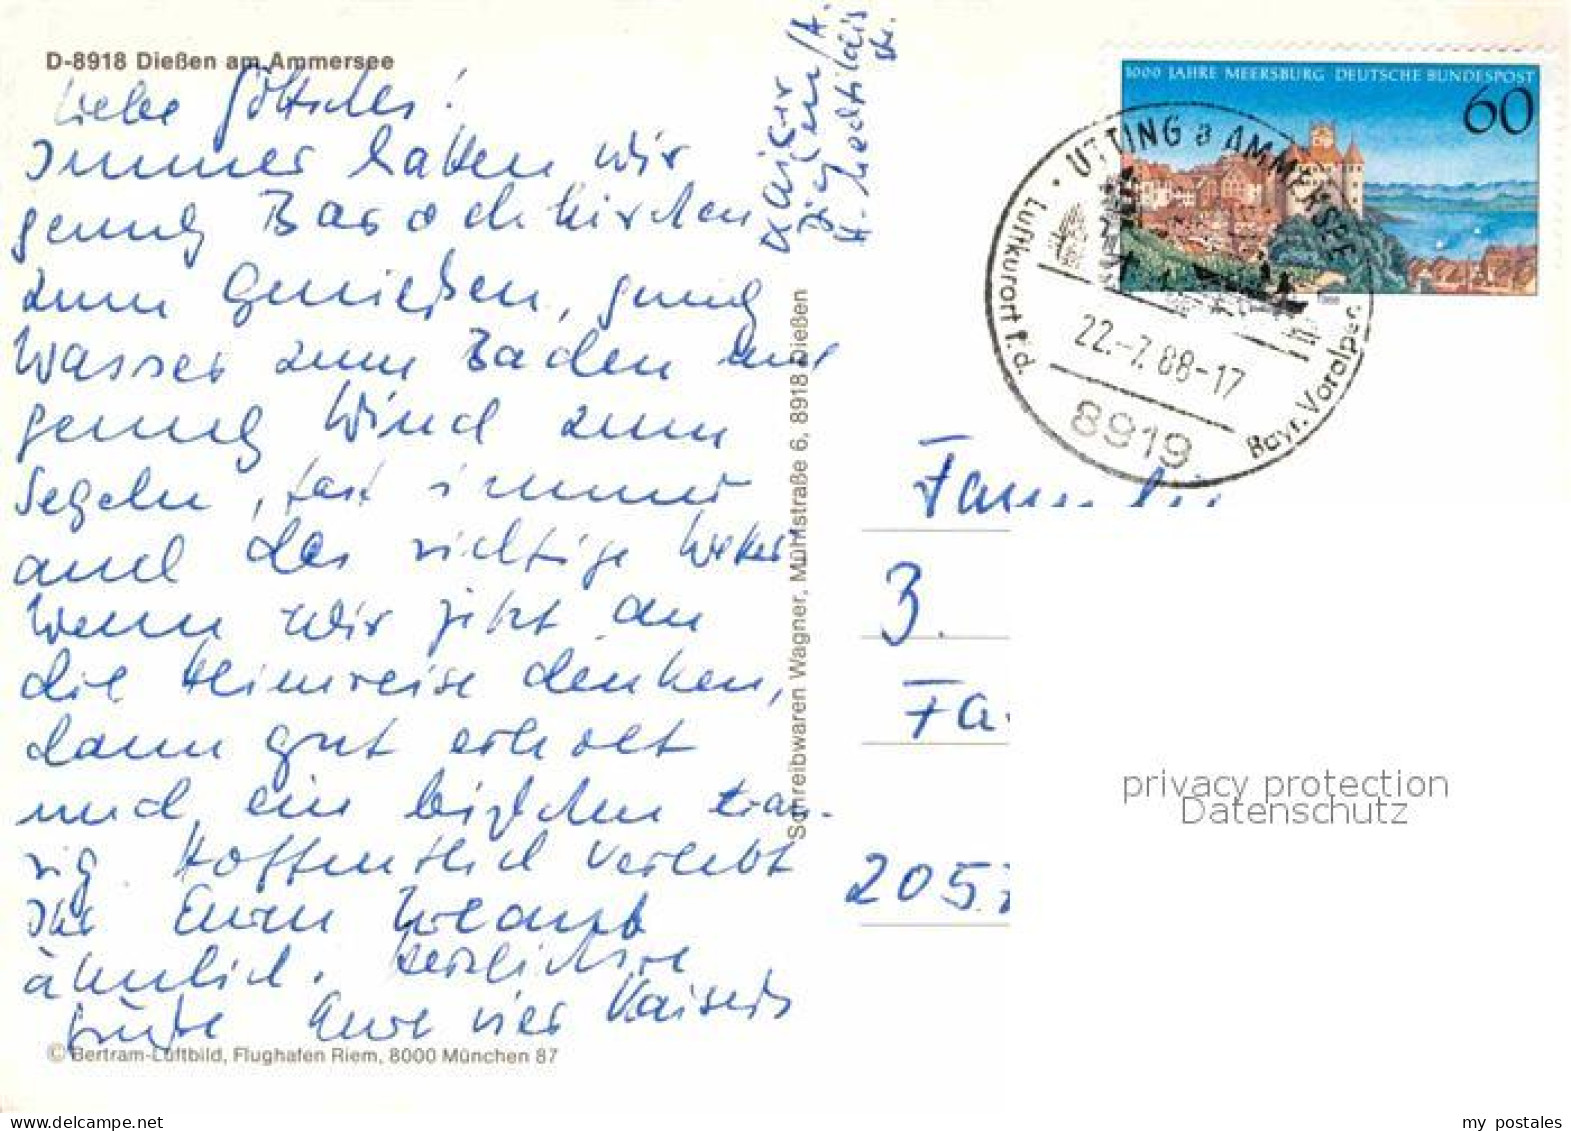 D-8918 Dießen am Ammersee
Liebe Göttsches!
Immer hatten wir
genug Barockkirchen
zum Genießen, genug
Wasser zum Baden und
genug Wind zum
Segeln, fast immer
auch das richtige Wetter.
Wenn wir jetzt an
die Heimreise denken,
dann gut erholt
und ein bißchen trau-
rig. Hoffentlich verlebt
Ihr Euren Urlaub
ähnlich. Herzlichste
Grüße Eure vier Kaisers
© Bertram-Luftbild, Flughafen Riem, 8000 München 87
Kaiser
/A.
str.
Schreibwaren Wagner, Mühlstraße 6, 8918 Dießen
1000 JAHRE MEERSBURG DEUTSCHE BUNDESPOST
60
1988
UTTING a AMMERSEE
Luftkurort i. d. Bayr. Voralpen
22.-7.88-17
8919
Familie
3.
Fa
205
privacy protection
Datenschutz
my postales